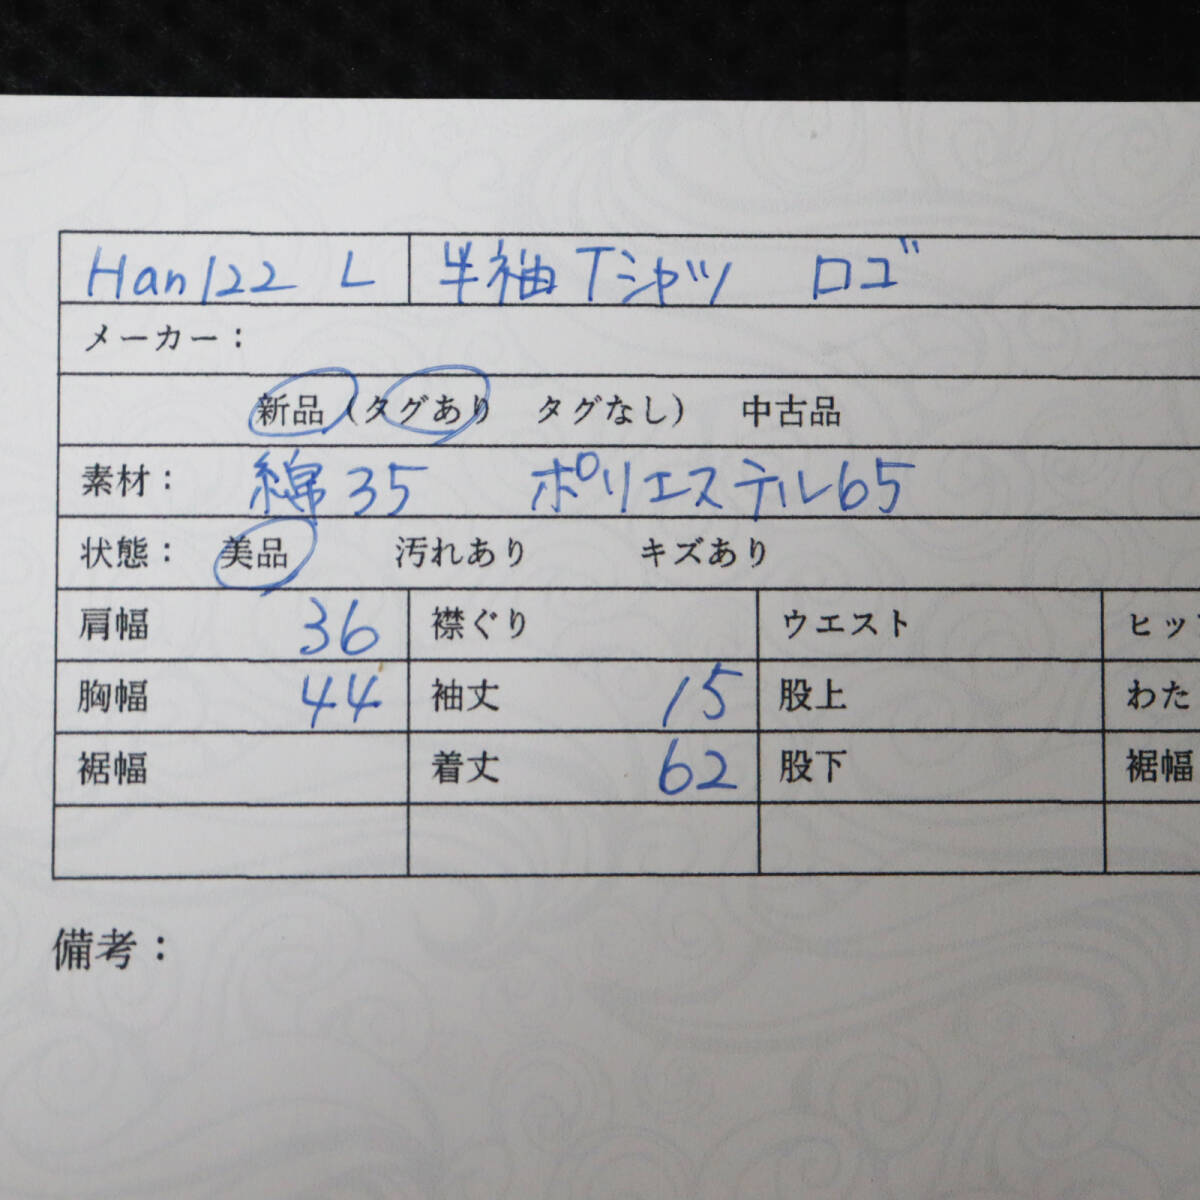 Han122 L 半袖Tシャツ ロゴ
メーカー：
新品（タグあり タグなし） 中古品
素材： 綿35 ポリエステル65
状態： 美品 汚れあり キズあり
肩幅 36 襟ぐり ウエスト ヒッ
胸幅 44 袖丈 15 股上 わた
裾幅 着丈 62 股下 裾幅
備考：